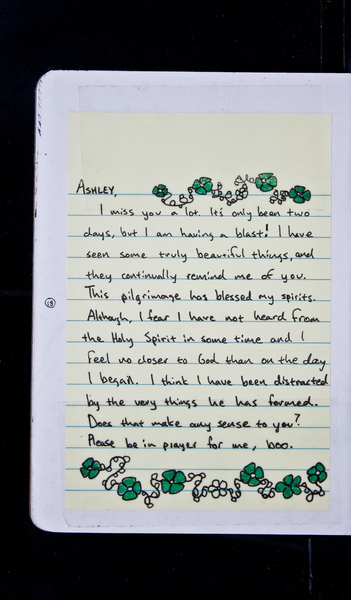 ASHLEY,
I miss you a lot. It's only been two
days, but I am having a blast! I have
seen some truly beautiful things, and
they continually remind me of you.
This pilgrimage has blessed my spirits.
Although, I fear I have not heard from
the Holy Spirit in some time and I
feel no closer to God than on the day
I began. I think I have been distracted
by the very things he has formed.
Does that make any sense to you?
Please be in prayer for me, boo.